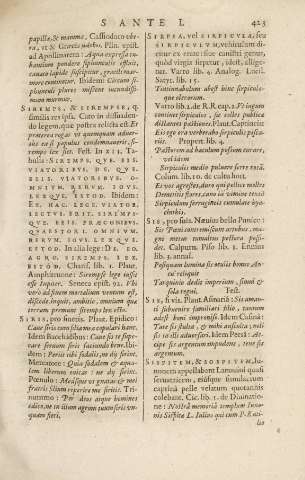 S ANTE I.
423
papilla, & mamma, Cassiodoro vbe-
ra, & Græcis
ad Apollinarem: Aqua expressa tu-
bantium pondere
cautè lapide suscipitur, gracili mar-
more continetur. Ibidem: Circum si-
phunculi plures
morum murmur.
SIREMPS, & SIREMPSE, q.
similis res ipsa. Cato in dissuaden-
do legem, quæ postea relicta est: Et
præterea rogas vt quemquam aduer-
sus ea si populus condemnauerit, si-
remps lex siet. Fest. IN XIX. Ta-
bula: SIREMPS. QVE. EIS.
VIATORIBVS. DE. QVE.
EIS. VIATORIBVS. O-
MNIVM. RERVM. IOVS.
LEXQVE. ESTOD. Ibidem:
EX. HAC. LEGE. VIATOR.
LECTVS. ERIT. SIREMPS-
QVE. EIS. PRÆCONIBVS.
QVATTVORIS. OMNIVM.
RERVM. IOVS. LEXQVE.
ESTOD. In alia lege: DE. EO.
AGRO. SIREMPS. LEX.
ESTOD. Charis. lib. 1. Plaut.
Amphitruone: Sirempse lege iussit
esse Iuppiter. Seneca epist. 92. Vbi
verò ad suum mortalium ventum est,
discede, inquit, ambitio, omnium quæ
terram premunt siremps lex esto.
SIRIS, pro siueris. Plaut. Epidico:
Caue siris cum filia mea copulari hanc.
Idem Bacchidibus: Caue sis te supe-
rare seruum siris faciundo bene. Ibi-
dem: Periit tibi sodalis, ne illi sirint.
Mercatore: Quia sodalem & equa-
lem liberum vocat: ne dij sirint.
Pœnulo: Meâsque vt gnatas & mei
fratris filium reperire me siritis. Tri-
nummo: Per deos atque homines
edico, ne tu illum agrum tuum siris vn-
quam fieri,
SIRPEA, vel SIRPICVLA, seu
SIRPICVLVM, vehiculum di-
citur ex crate stant scirpi genus,
quòd virgis sirpetur, idest, allige-
tur. Varro lib. 4. Analog. Lucil.
Satyr. lib. 15.
Tintinabulum abest hinc sirpiculæ-
que olerarum.
Varro lib. 2. de R. R. cap. 2. Vt iugum
continet sirpiculos, sic stilus publica
deligatos pastores. Plaut. Captiuis:
Eò ego erabo sirpiculo pisca-
rio. Propert. lib. 4.
Pastorem ad baculum possum curare,
vel idem
Sirpiculis medio puluere ferre rosã.
Colum. lib. 10. de cultu hort.
Et vos agrestes, duro qui pollice molles
Demetitis flores, cano iam vimine textũ
Sirpiculum ferrugineis cumulate hya-
cinthis.
SIS, pro suis. Næuius bello Punico:
Sis Pœni contremiscunt artibus, ma-
gni metus tumultus pectora possi-
det. Calpurn. Piso lib. 1. Ennius
lib. 3. annal.
Postquam lumina sis oculis bonus An-
cu' reliquit
Tarquinio dedit imperium, simul &
sola regni. Fest.
SIS, si vis. Plaut. Asinaria: Sis amari
isuenire familiari filio, tantum
adest boni improuisò. Idem Culina:
Tace sis stulta, & mihi ausculta, noli
sis tu illi aduersari. Idem Persâ: Ac-
cipe sis argentum impudens, tene sis
argentum.
SISPITEM, & SOSPITEM, Iu-
nonem appellabant Lanuuini quasi
seruatricem, eiúsque simulacrum
caprinâ pelle velatum quotannis
colebant. Cic. lib. 1. de Diuinatio-
ne: Nostrâ memoriâ templum Iuno-
nis Sispita L. Iulius qui cum P. Ruti-
lio